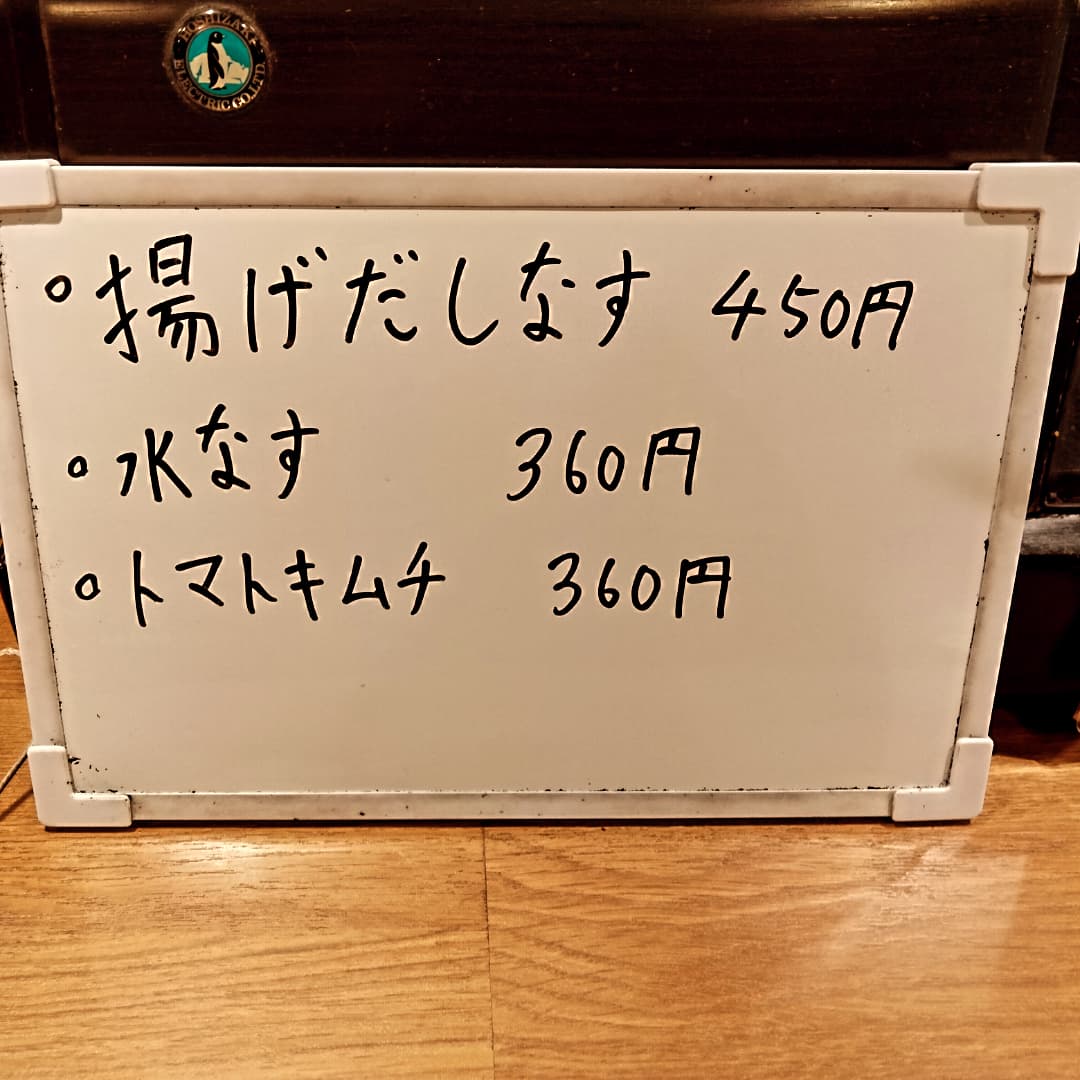 HOSHIZAKI ELECTRIC CO.,LTD.
。揚げだしなす 450円
。水なす 360円
。トマトキムチ 360円